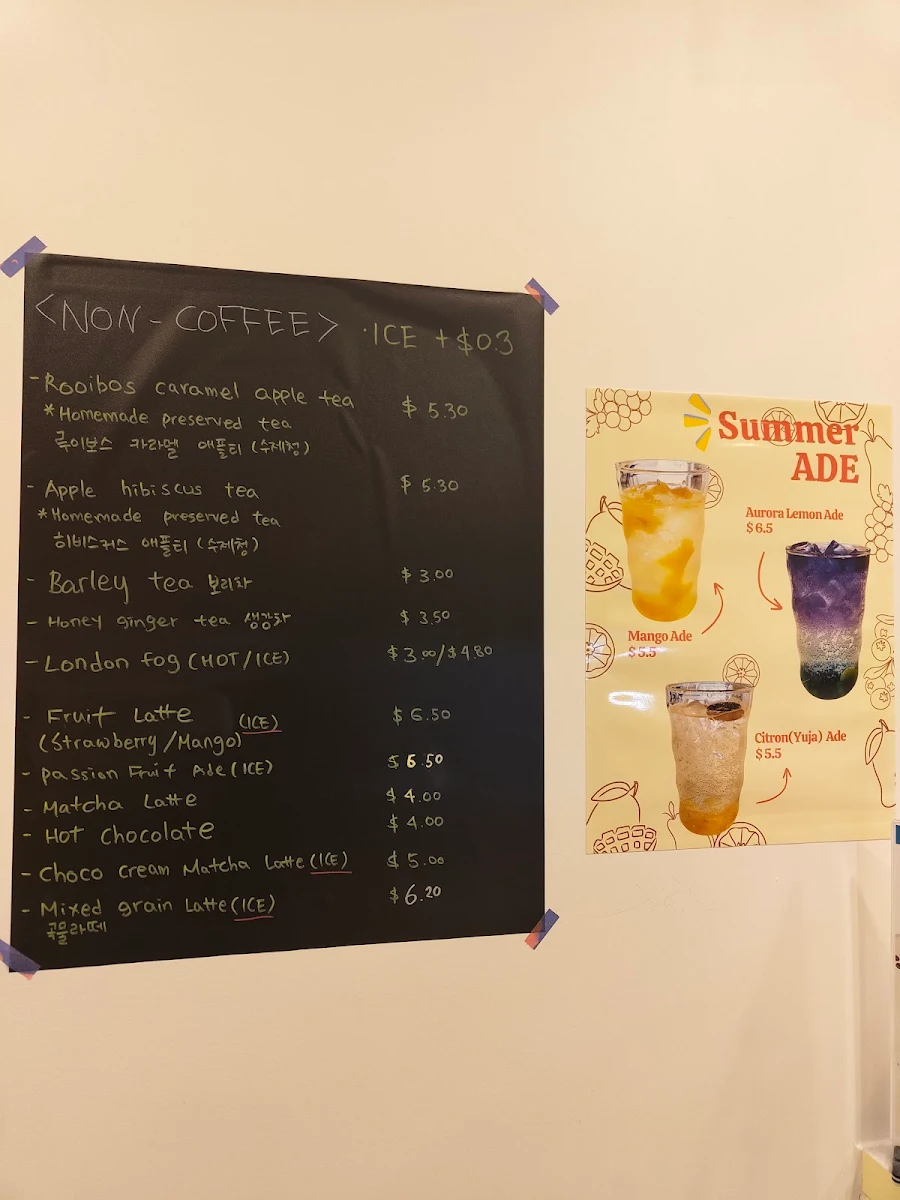 <NON-COFFEE> ·ICE +$0.3
-Rooibos caramel apple tea $5.30
*Homemade preserved tea
루이보스 카라멜 애플티 (수제청)
- Apple hibiscus tea $5.30
*Homemade preserved tea
히비스커스 애플티 (수제청)
- Barley tea 보리차 $3.00
- Honey ginger tea 생강차 $3.50
- London fog (HOT/ICE) $3.00/$4.80
- Fruit Latte (ICE) $6.50
(Strawberry/Mango)
- Passion Fruit Ade (ICE) $6.50
- Matcha Latte $4.00
- Hot chocolate $4.00
- Choco cream Matcha Latte (ICE) $5.00
- Mixed grain Latte (ICE) $6.20
곡물라떼
Summer
ADE
Aurora Lemon Ade
$6.5
Mango Ade
$5.5
Citron(Yuja) Ade
$5.5